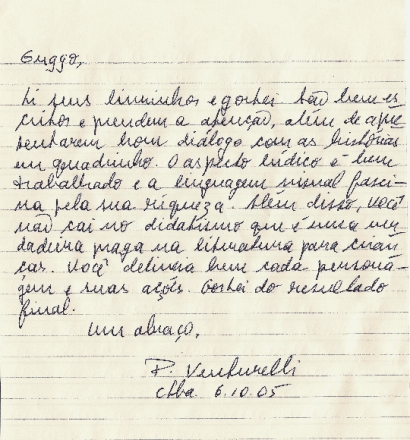 Guggo,
Li seus livrinhos e gostei. São bem es
critos e prendem a atenção, além de apre
sentarem bom diálogo com as histórias
em quadrinho. O aspecto lúdico é bem
trabalhado e a linguagem visual fasci
na pela sua riqueza. Além disso, você
não cai no didatismo que é uma ver
dadeira praga na literatura para crian
ças. Você delineia bem cada persona
gem e suas ações. Gostei do resultado
final.
Um abraço,
P. Venturelli
Ctba. 6.10.05